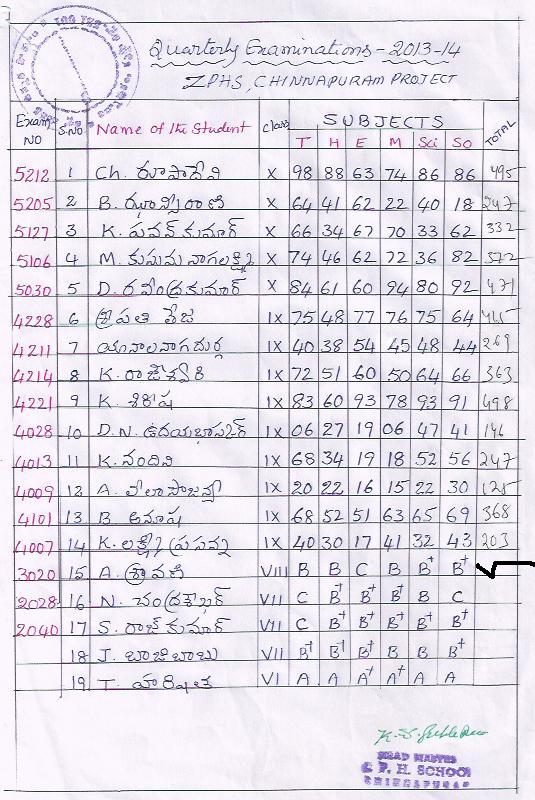 Quarterly Examinations - 2013-14
ZPHS, CHINNAPURAM PROJECT
Exam NO S.NO Name of the Student Class SUBJECTS TOTAL
T H E M Sci So
5212 1 Ch. రూపాదేవి X 98 88 63 74 86 86 495
5205 2 B. ఝాన్సీరాణి X 64 41 62 22 40 18 247
5127 3 K. పవన్ కుమార్ X 66 34 67 70 33 62 332
5106 4 M. కుసుమ నాగలక్ష్మి X 74 46 62 72 36 82 372
5030 5 D. రవీంద్రకుమార్ X 84 61 60 94 80 92 471
4228 6 శ్రీపతి తేజ IX 75 48 77 76 75 64
4211 7 యానాలనాగదుర్గ IX 40 38 54 45 48 44 269
4214 8 K. రాజేశ్వరి IX 72 51 60 50 64 66 363
4221 9 K. శిరీష IX 83 60 93 78 93 91 498
4028 10 D.N. ఉదయభాస్కర్ IX 06 27 19 06 47 41 146
4013 11 K. నందిని IX 68 34 19 18 52 56 247
4009 12 A. IX 20 22 16 15 22 30 125
4101 13 B. అనూష IX 68 52 51 63 65 69 368
4007 14 K. లక్ష్మీ ప్రసన్న IX 40 30 17 41 32 43 203
3020 15 A. శ్రావణి VIII B B C B B+ B+
2028 16 N. చంద్రశేఖర్ VII C B+ B+ B+ B C
2040 17 S. రాజ్ కుమార్ VII C B+ B+ B+ B+ B+
18 J. బాజిబాబు VII B+ B+ B+ B B B+
19 T. హారిషిత VI A A A+ A+ A A
HEAD MASTER
Z. P. H. SCHOOL
CHINNAPURAM